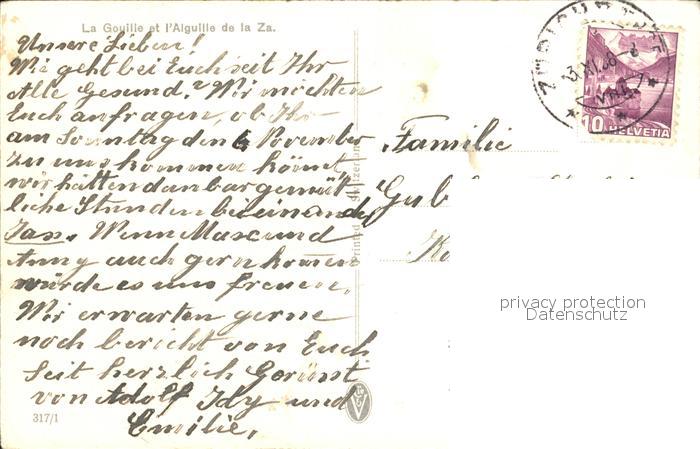 La Gouille et l'Aiguille de la Za.
Unsere Lieben!
Wie geht bei Euch seit Ihr
Alle Gesund? Wir möchten
Euch anfragen, ob Ihr
am Sonntag den 6 November
zu uns kommen könnt,
wir hätten dan bar gemüt
liche Stunden beieinander
Jass. Wenn Max und
Anny auch gern kommen
würde es uns freuen.
Wir erwarten gerne
noch bericht von Euch
Seit herzlich Gegrüsst
von Adolf Idy und
Emilie,
317/1
Printed in Switzerland
Familie
Gub
Ko
10 HELVETIA
privacy protection
Datenschutz